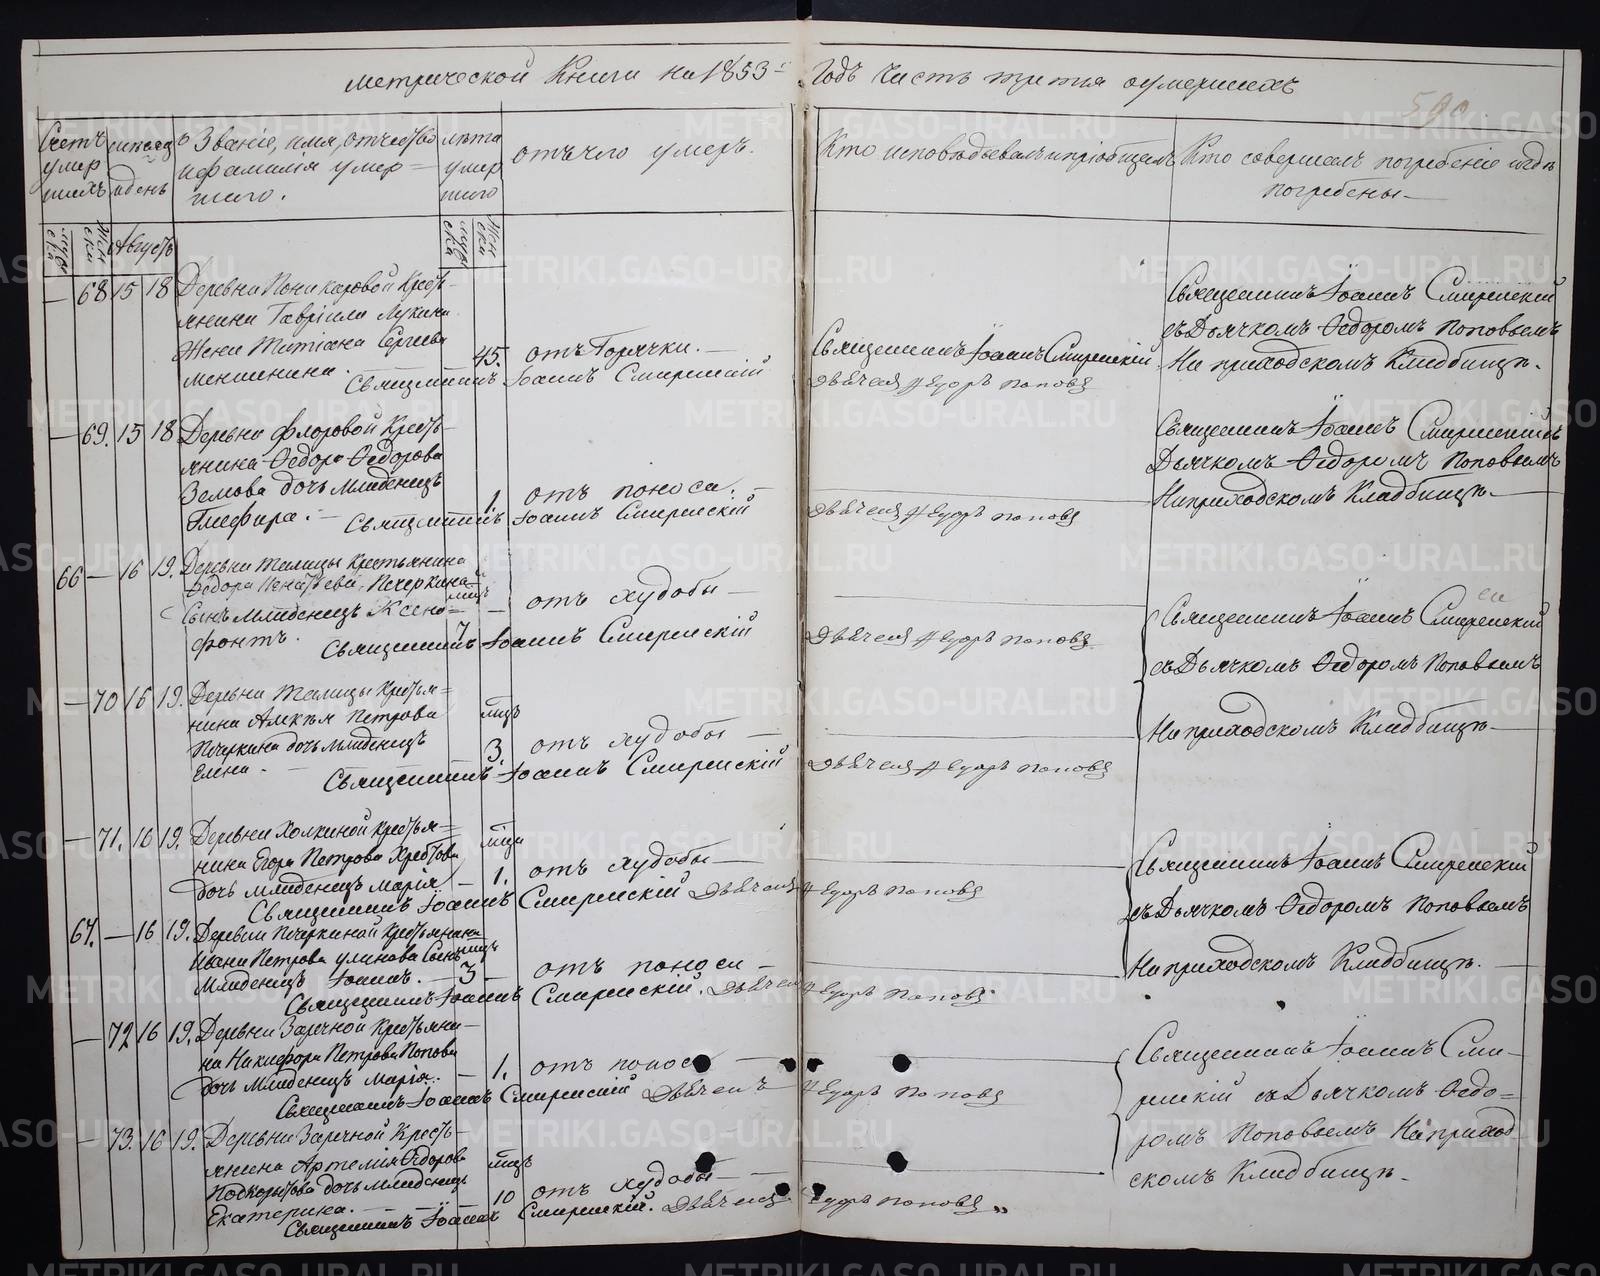 Метрической Книги на 1853й Годъ Часть третья оумершихъ
590
Счетъ умершихъ
мужеска
женска
Мѣсяцъ и день
Августъ
Званіе, имя, отчество и фамилія умершаго.
Лѣта умершаго
мужеска
женска
отъ чего умеръ.
Кто исповѣдывалъ и пріобщалъ
Кто совершалъ погребеніе и гдѣ погребены
— 68 15 18 Деревни Поникаровой Кресть-
янина Гавріила Лукина
Жена Татіана Сергіева
Меншенина. 45. отъ Горячки. —
Священникъ Іоаннъ Смиренскій
Священникъ Іоаннъ Смиренскій
Дьячекъ Ѳедоръ Поповъ
Священникъ Іоаннъ Смиренскій
съ Дьячкомъ Ѳедоромъ Поповымъ
На приходскомъ Кладбищѣ.
— 69. 15 18 Деревни Флоровой Кресть-
янина Ѳедора Ѳедорова
Земова дочь младенецъ
Глафира. — 1. отъ поноса. —
Священникъ Іоаннъ Смиренскій
Дьячекъ Ѳедоръ Поповъ
Священникъ Іоаннъ Смиренскій съ
Дьячкомъ Ѳедоромъ Поповымъ
На приходскомъ Кладбищѣ.
66 — 16 19. Деревни Талицы Крестьянина
Ѳедора Печеркина
Сынъ младенецъ Ксено-
фонтъ. мцъ 7 — отъ худобы —
Священникъ Іоаннъ Смиренскій
Дьячекъ Ѳедоръ Поповъ
Священникъ Іоаннъ Смиренскій
съ Дьячкомъ Ѳедоромъ Поповымъ
На приходскомъ Кладбищѣ.
— 70 16 19. Деревни Талицы Крестья-
нина Алексѣя Петрова
Печеркина дочь младенецъ
Елена. — мцъ 3. отъ худобы —
Священникъ Іоаннъ Смиренскій
Дьячекъ Ѳедоръ Поповъ
— 71. 16 19. Деревни Холкиной Крестья-
нина Егора Петрова Хребтова
дочь младенецъ Марія. — мцъ 1. отъ худобы —
Священникъ Іоаннъ Смиренскій Дьячекъ Ѳедоръ Поповъ
Священникъ Іоаннъ Смиренскій
съ Дьячкомъ Ѳедоромъ Поповымъ
На приходскомъ Кладбищѣ.
67. — 16 19. Деревни Печеркиной Крестьянина
Ивана Петрова Улинова Сынъ
младенецъ Іоаннъ. — мцъ 3 — отъ поноса —
Священникъ Іоаннъ Смиренскій. Дьячекъ Ѳедоръ Поповъ
— 72 16 19. Деревни Заречной Крестьяни-
на Никифора Петрова Попова
дочь младенецъ Марія. — 1. отъ поноса —
Священникъ Іоаннъ Смиренскій Дьячекъ Ѳедоръ Поповъ
Священникъ Іоаннъ Сми-
ренскій съ Дьячкомъ Ѳедо-
ромъ Поповымъ На приход-
скомъ Кладбищѣ.
— 73. 16 19. Деревни Заречной Кресть-
янина Артемія Ѳедорова
Поскрытова дочь младенецъ
Екатерина. — мцъ 10 отъ худобы —
Священникъ Іоаннъ Смиренскій. Дьячекъ Ѳедоръ Поповъ
METRIKI.GASO-URAL.RU